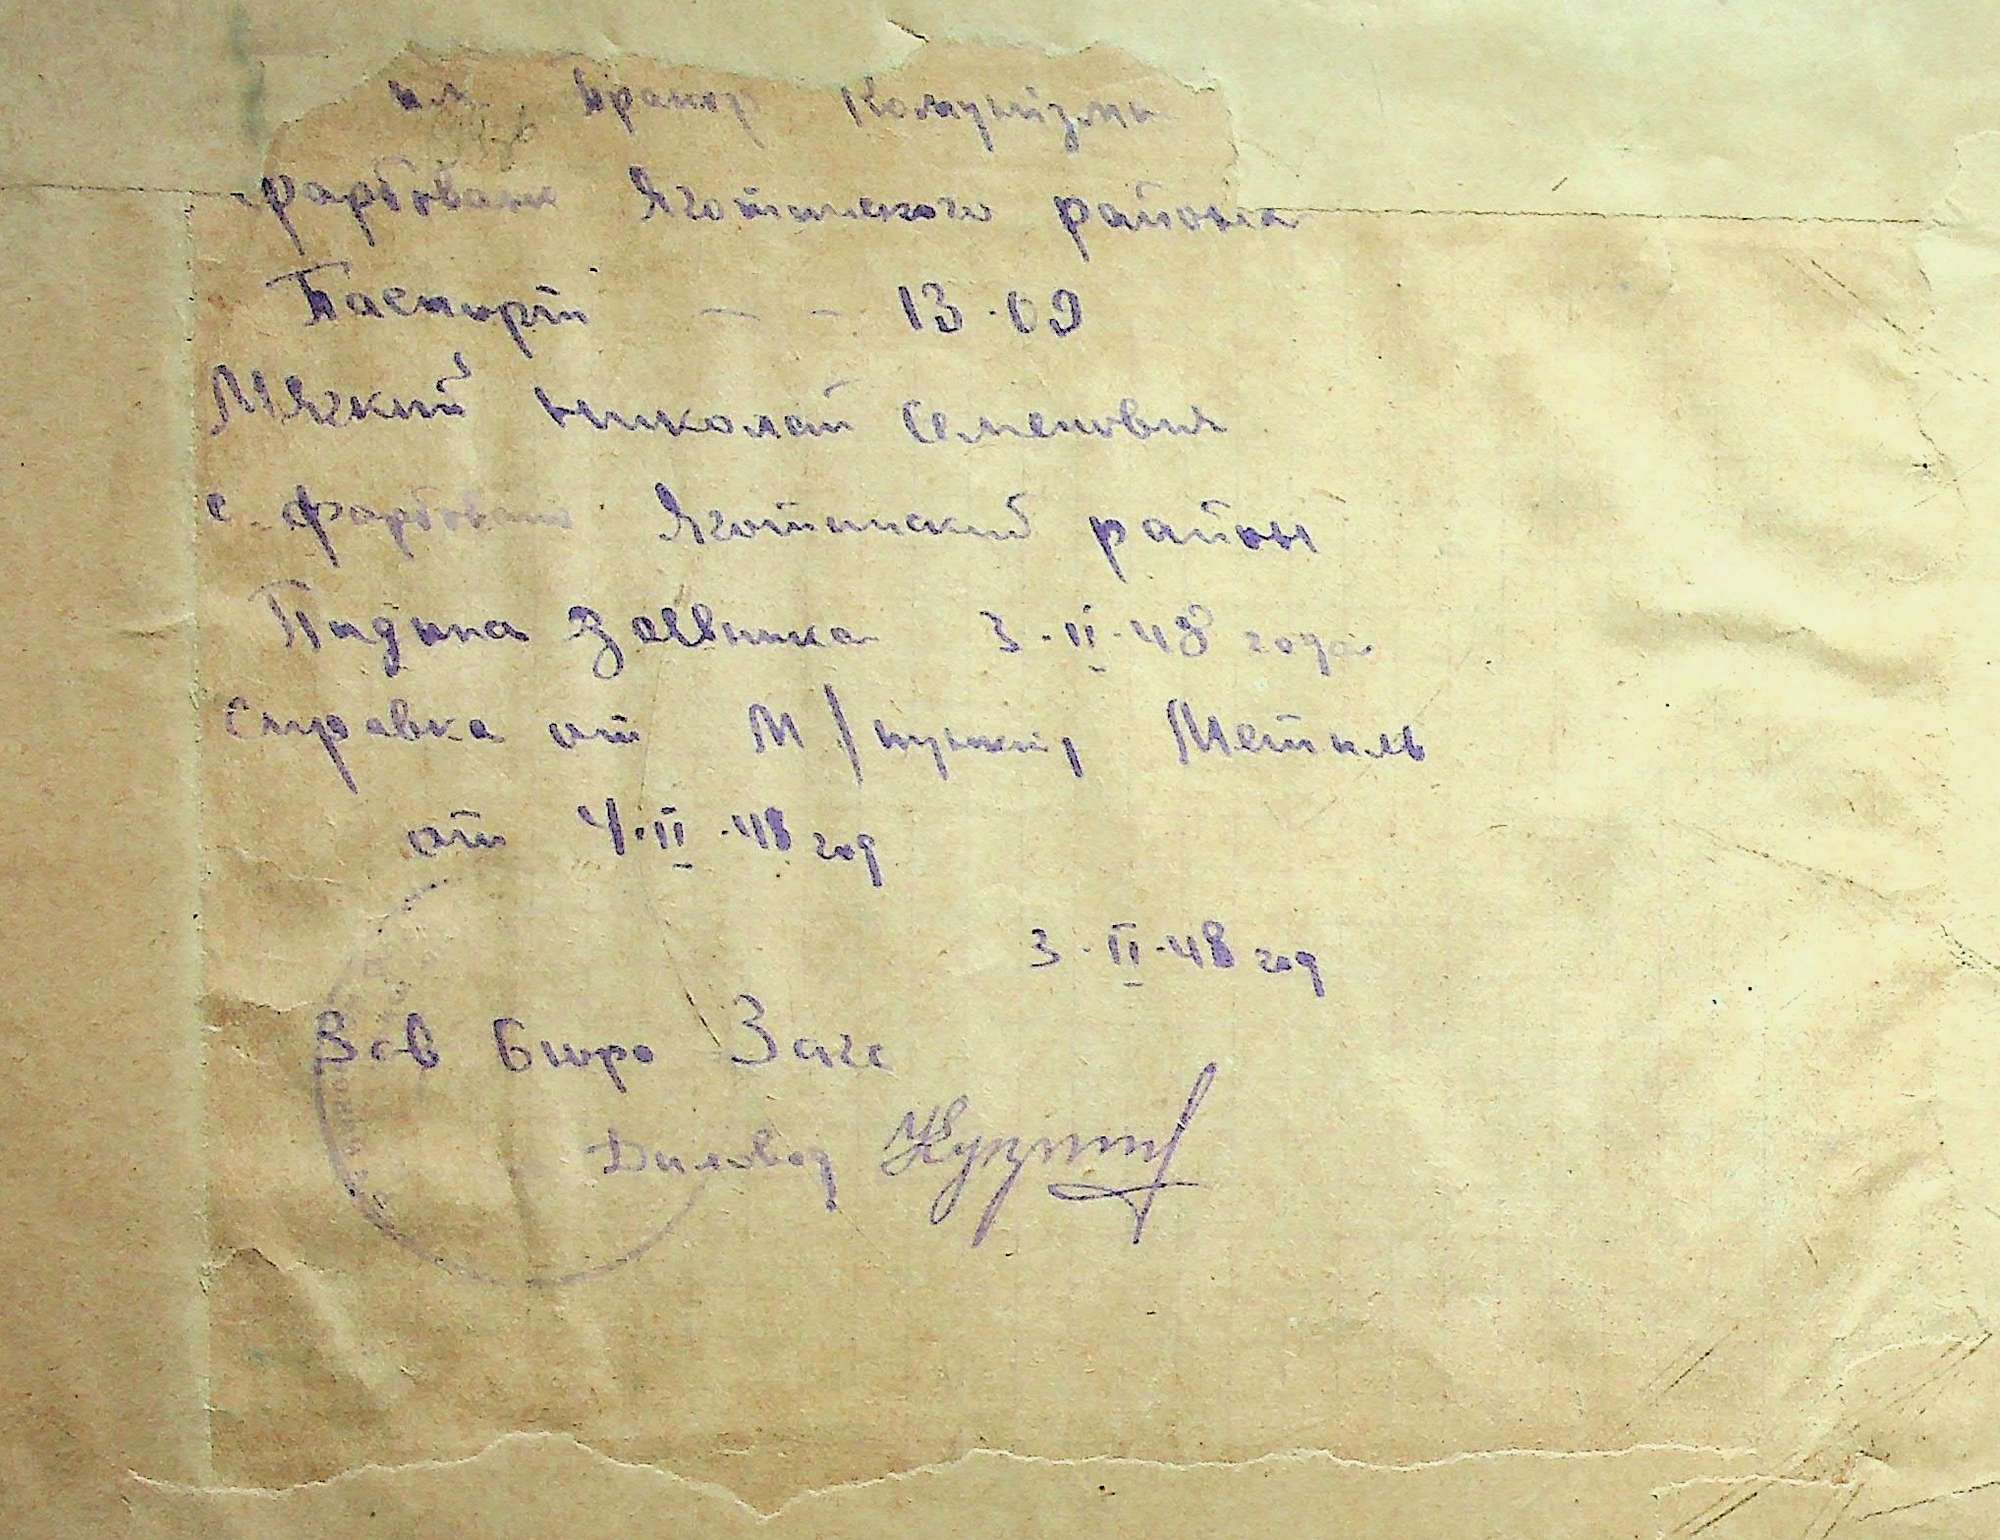 им. Прапор Комунізму
Фарбоване Яготинского района
Паспорт - - 13.09
Мягкий Николай Семенович
с. Фарбовано Яготинский район
Пидпись Заевника 3.II.48 года
Справка от М/пункт,
от 4.II.48 год
3.II.48 год
Зав Бюро Загс
Диловод